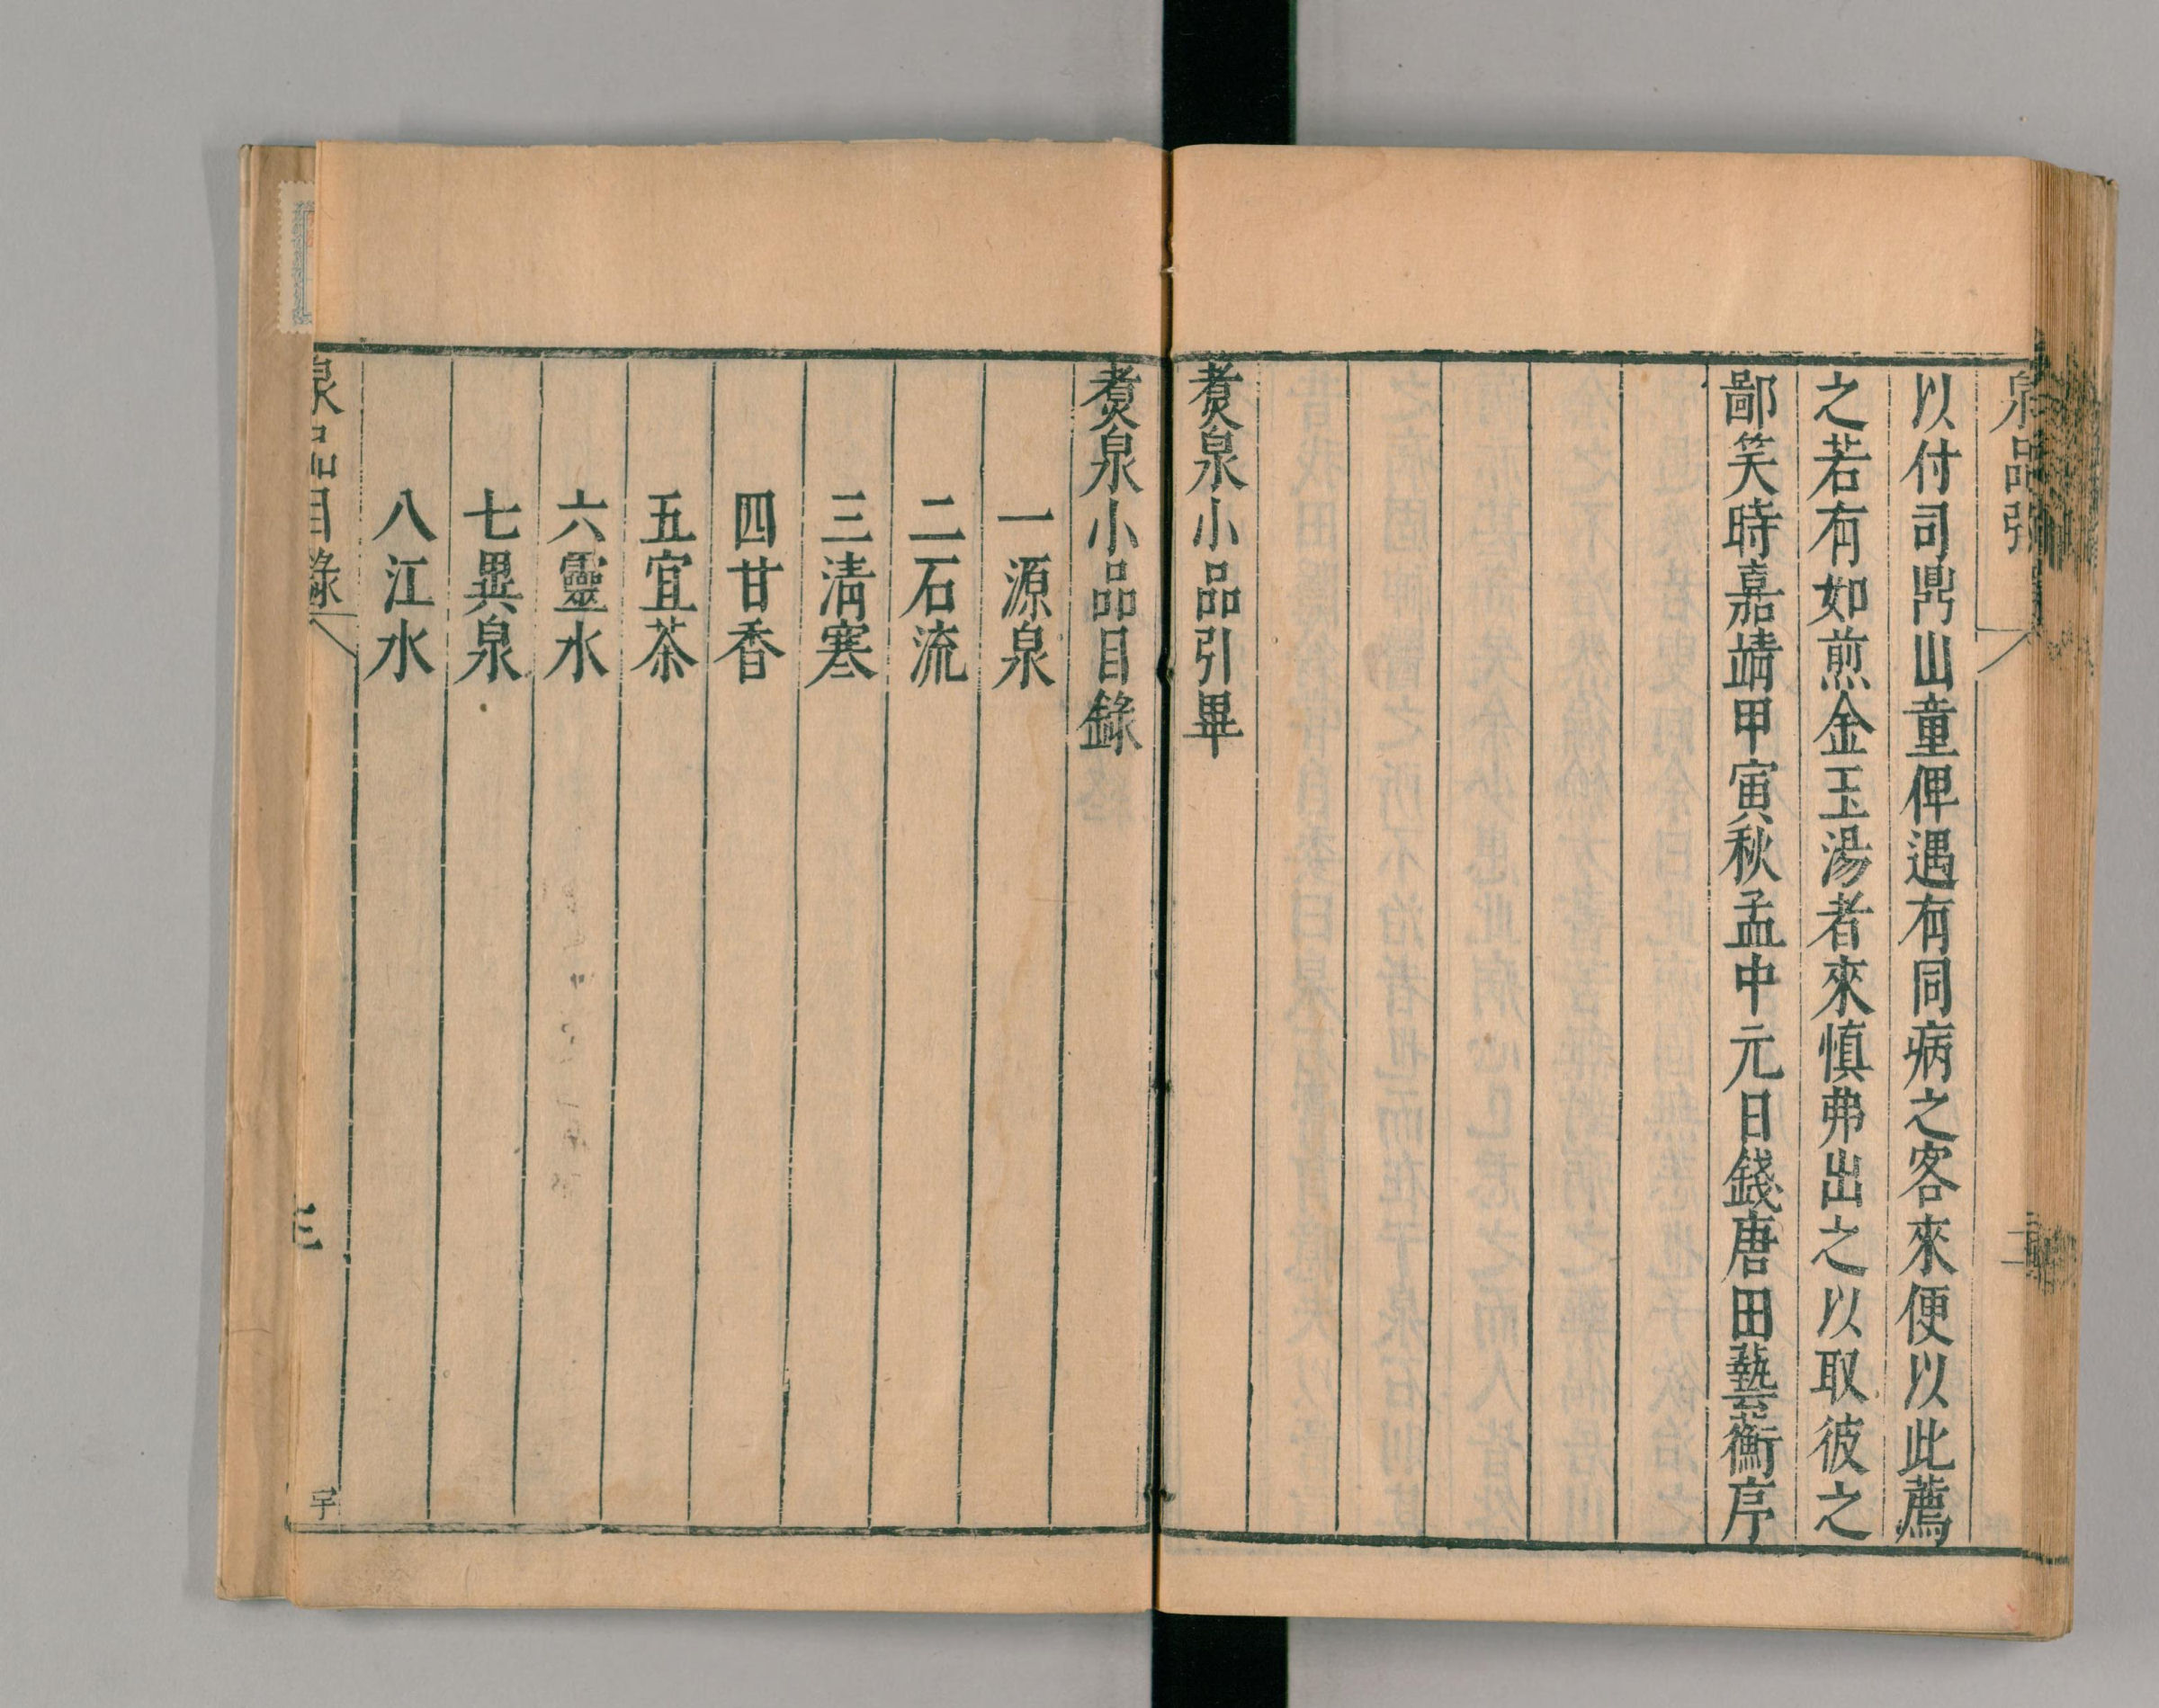 泉品引
二
以付司鼎山童俾遇有同病之客來便以此薦
之若有如煎金玉湯者來慎弗出之以取彼之
鄙笑時嘉靖甲寅秋孟中元日錢唐田藝蘅序
煑泉小品引畢
煑泉小品目錄
一源泉
二石流
三清寒
四甘香
五宜茶
六靈水
七異泉
八江水
泉品目錄
三
字